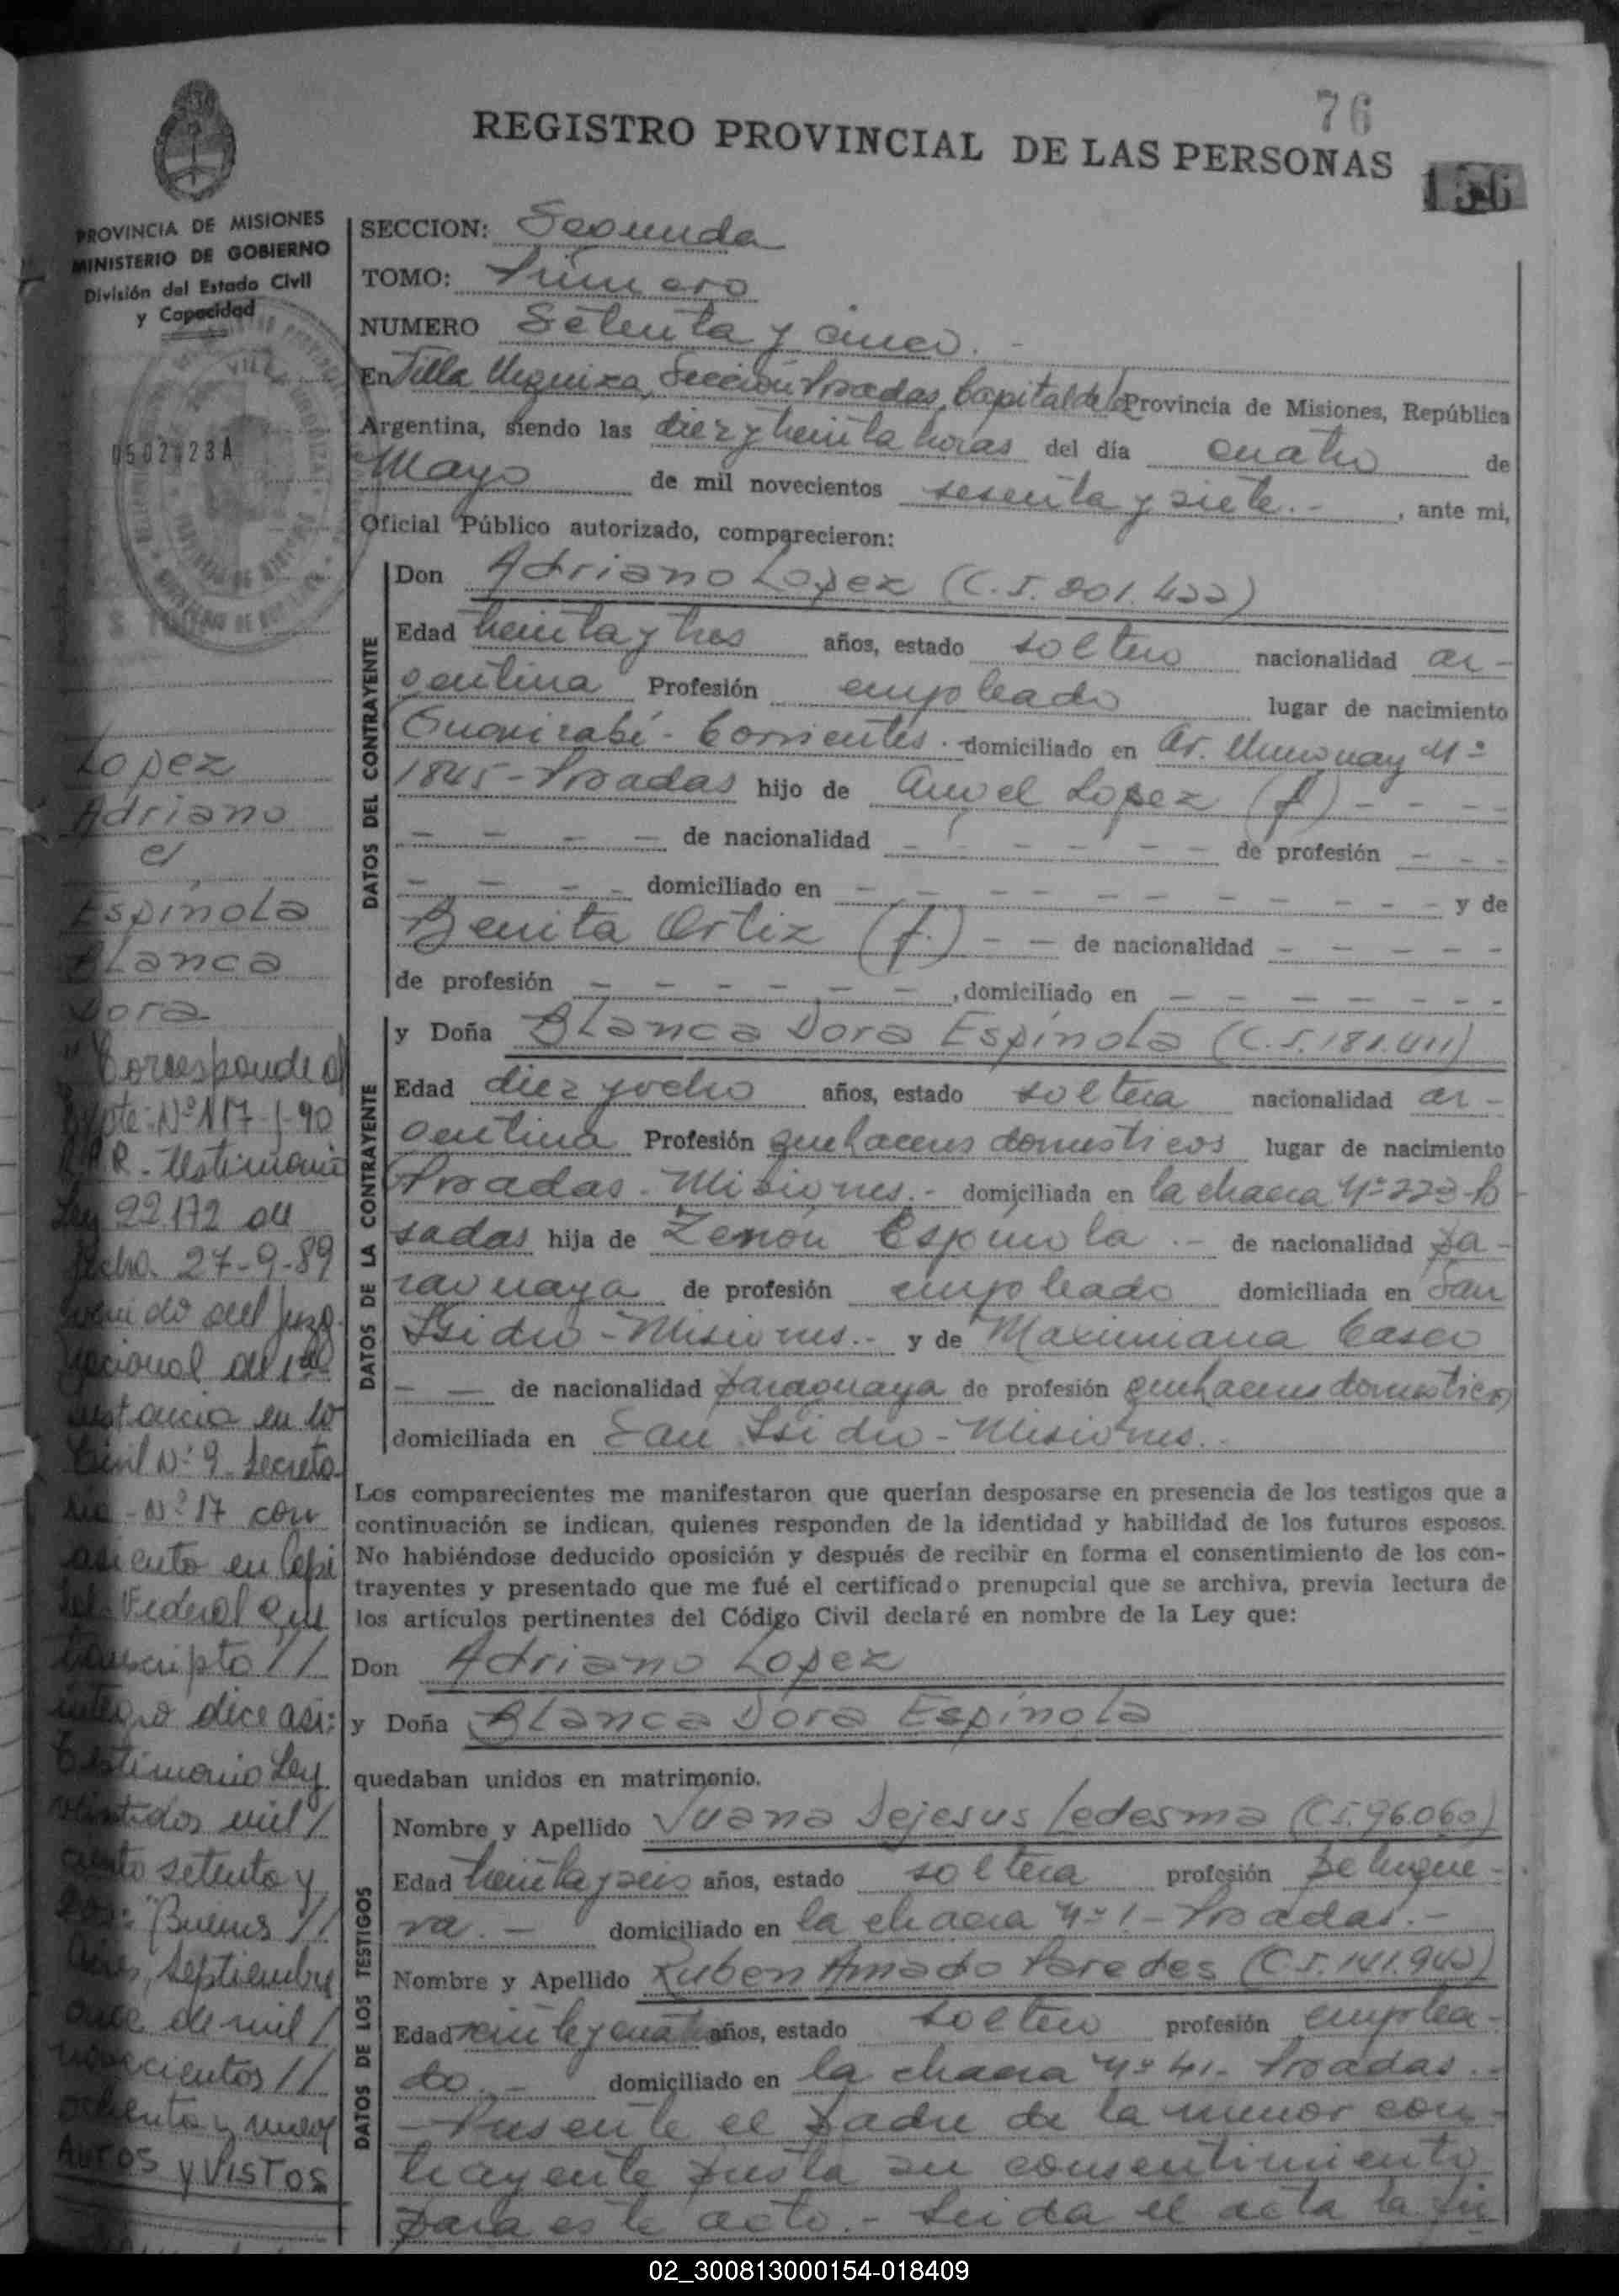 76
REGISTRO PROVINCIAL DE LAS PERSONAS
156
PROVINCIA DE MISIONES
MINISTERIO DE GOBIERNO
División del Estado Civil
y Capacidad
0502123A
SECCION: Segunda
TOMO: Primero
NUMERO Setenta y cinco.-
En Villa Urquiza, Sección Posadas, Capital de la Provincia de Misiones, República
Argentina, siendo las diez y treinta horas del día cuatro de
Mayo de mil novecientos sesenta y siete.- , ante mi,
Oficial Público autorizado, comparecieron:
DATOS DEL CONTRAYENTE
Don Adriano Lopez (C.I. 201.422)
Edad treinta y tres años, estado soltero nacionalidad ar-
gentina Profesión empleado lugar de nacimiento
Guavirabí - Corrientes. domiciliado en Av. Uruguay Nº
1845 - Posadas hijo de Angel Lopez (f) - - - -
- - - - de nacionalidad - - - - - - de profesión - - -
- - - - domiciliado en - - - - - - - - - - y de
Benita Ortiz (f.) - - de nacionalidad - - - - -
de profesión - - - - - - , domiciliado en - - - - - - - -
DATOS DE LA CONTRAYENTE
y Doña Blanca Dora Espínola (C.I. 181.411)
Edad diez y ocho años, estado soltera nacionalidad ar-
gentina Profesión quehaceres domesticos lugar de nacimiento
Posadas - Misiones.- domiciliada en la chacra Nº 223-Po
sadas hija de Zenón Espínola.- de nacionalidad pa-
raguaya de profesión empleado domiciliada en San
Isidro - Misiones.- y de Maximiana Casco
- - de nacionalidad paraguaya de profesión quehaceres domesticos
domiciliada en San Isidro - Misiones.-
Los comparecientes me manifestaron que querían desposarse en presencia de los testigos que a
continuación se indican, quienes responden de la identidad y habilidad de los futuros esposos.
No habiéndose deducido oposición y después de recibir en forma el consentimiento de los con-
trayentes y presentado que me fué el certificado prenupcial que se archiva, previa lectura de
los artículos pertinentes del Código Civil declaré en nombre de la Ley que:
Don Adriano Lopez
y Doña Blanca Dora Espínola
quedaban unidos en matrimonio.
DATOS DE LOS TESTIGOS
Nombre y Apellido Juana Dejesus Ledesma (C.I. 96.060)
Edad treinta y seis años, estado soltera profesión peluque-
ra.- domiciliado en la chacra Nº 1 - Posadas.-
Nombre y Apellido Ruben Amado Paredes (C.I. 141.942)
Edad veinte y cuatro años, estado soltero profesión emplea-
do.- domiciliado en la chacra Nº 41 - Posadas.-
- Presente el padre de la menor con-
trayente presta su consentimiento
para este acto.- Leida el acta la fir
Lopez
Adriano
c/
Espínola
Blanca
Dora
"Corresponde al
Expte: Nº 117-1-90
Testimonio
Ley 22.172 de
fecha 27-9-89
venido del Juzg.
Nacional de 1ra
Instancia en lo
Civil Nº 9 Secreta-
ria - Nº 17 con
asiento en Capi
tal Federal que
transcripto //
integro dice asi:
Testimonio Ley
veintidos mil /
ciento setenta y
dos: "Buenos //
Aires, Septiembre
once de mil /
novecientos //
ochenta y nueve
AUTOS y VISTOS
02_300813000154-018409